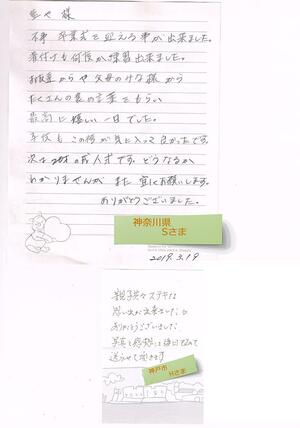 様
無事 卒業式を迎える事が出来ました。
着付けも何度か練習出来ました。
お友達からや父母のみな様から
たくさんの褒め言葉をもらい
最高に嬉しい一日でした。
子供もこの袴が気に入って良かったです。
次は の成人式です。どうなるか
わかりませんが また 宜しくお願いします。
ありがとうございました。
神奈川県
Sさま
2019.3.19
親子共々ステキな
思い出が出来ました
ありがとうございました
写真と感想は後日改めて
送らせて頂きます
神戸市
Hさま